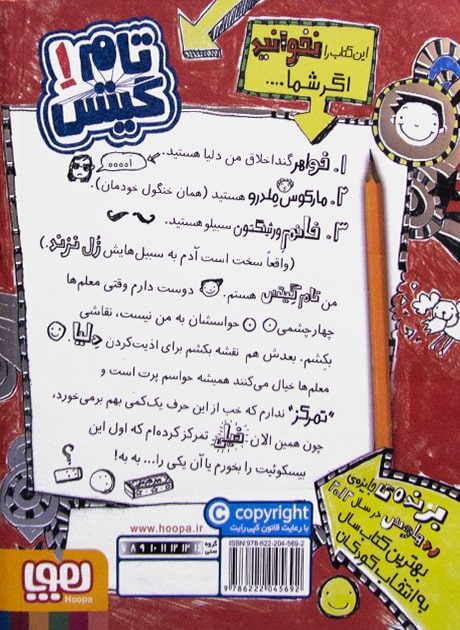 تام!
گیتس
این کتاب را نخوانید
اگر شما....
۱. خواهر گنداخلاق من دلیا هستید.
اه‍....
۲. مارکوس ملدرو هستید (همان خنگول خودمان).
۳. خانم ورثینگتون سبیلو هستید.
(واقعاً سخت است آدم به سبیل‌هایش زُل نزند.)
من تام گیتس هستم. دوست دارم وقتی معلم‌ها
چهارچشمی حواسشان به من نیست، نقاشی
بکشم. بعدش هم نقشه بکشم برای اذیت‌کردن دلیا.
معلم‌ها خیال می‌کنند همیشه حواسم پرت است و
"تمرکز" ندارم که خب از این حرف یک‌کمی بهم برمی‌خورد،
چون همین الان خیلی تمرکز کرده‌ام که اول این
بیسکوئیت را بخورم یا آن یکی را... به به!
?
برنده‌ی جایزه‌ی
در سال ۲۰۱۲
بهترین کتاب سال
به انتخاب کودکان
C copyright
با رعایت قانون کپی‌رایت
www.hoopa.ir
گروه سنی
۷ ۸ ۹ ۱۰ ۱۱ ۱۲ ۱۳ ۱۴
ISBN:978-622-204-569-2
9 786222 045692
هوپا
Hoopa